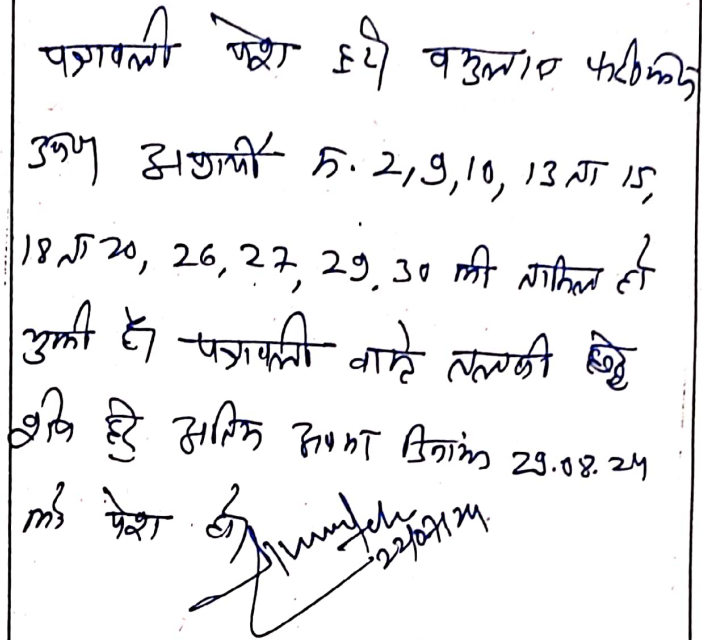 पत्रावली पेश हुयी वकुलाय फरीकैन
उप० अप्रार्थी क्र. 2,9,10, 13 ता 15,
18 ता 20, 26, 27, 29, 30 की तामिल हो
चुकी है। पत्रावली वास्ते तलबी
शेष हेतु अन्तिम अवसर दिनांक 29.08.24
को पेश हो।
22/07/24